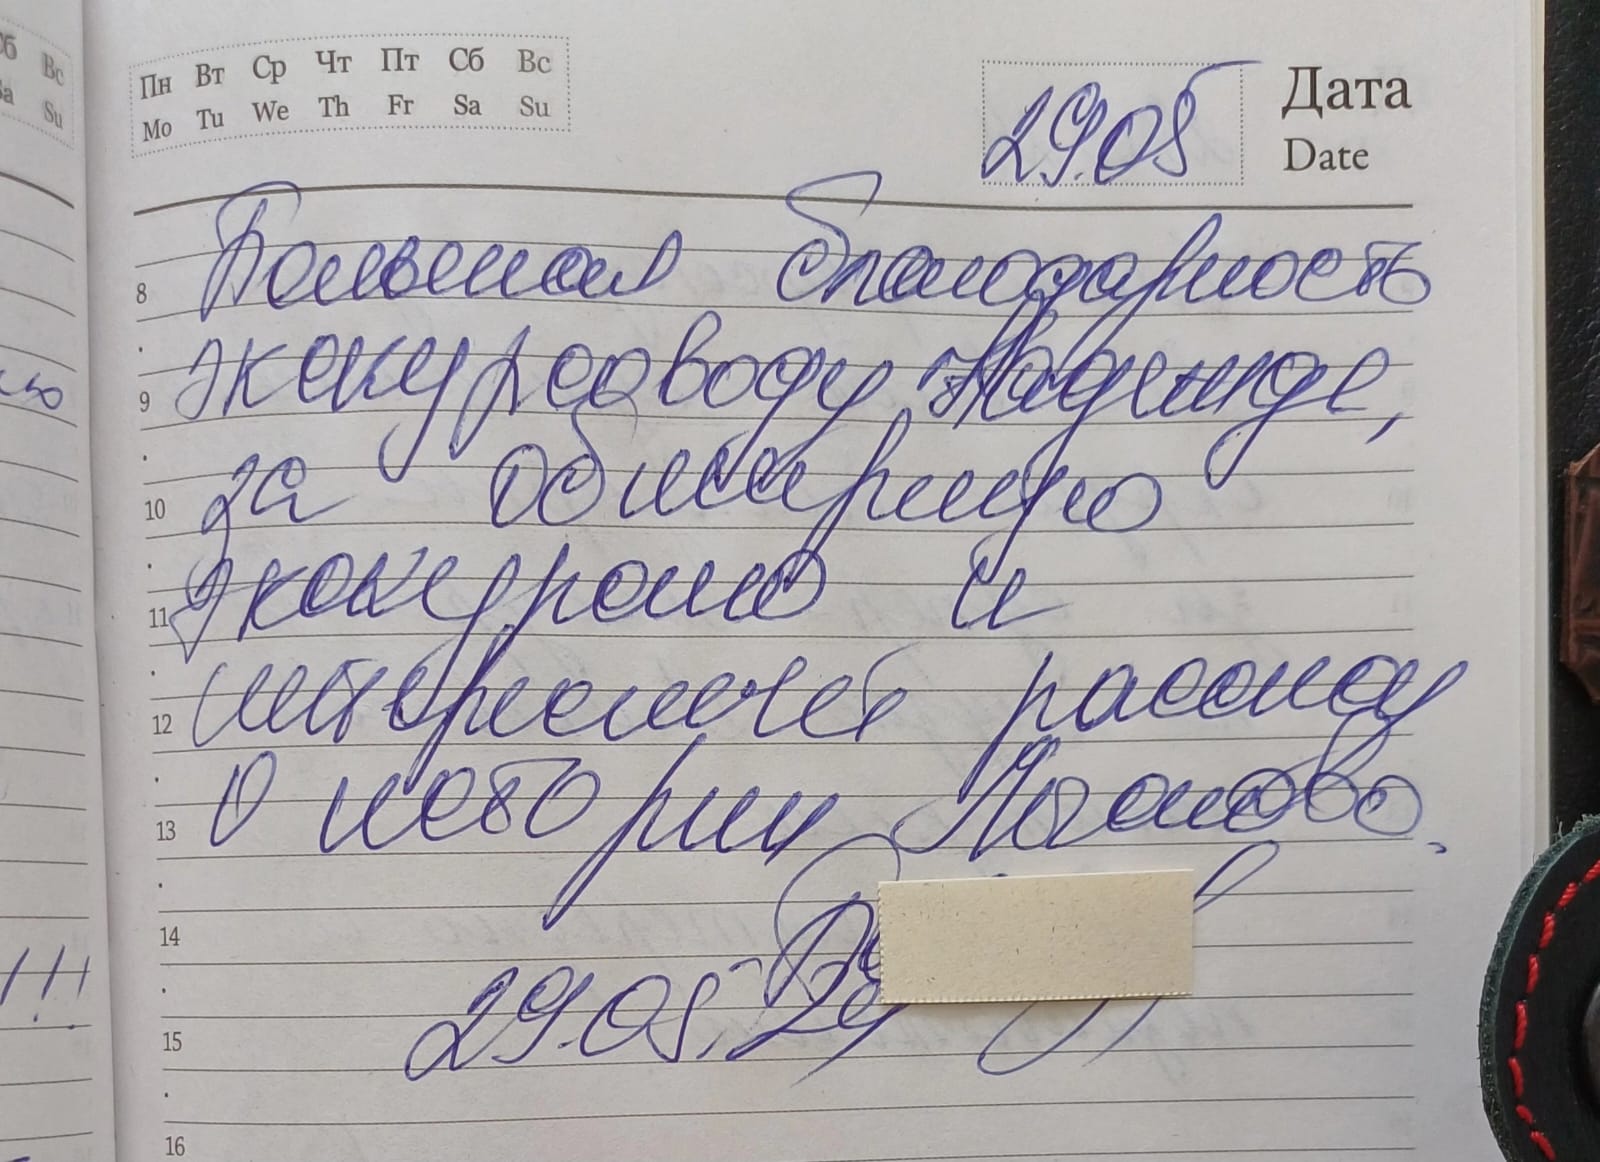 Пн Вт Ср Чт Пт Сб Вс
Mo Tu We Th Fr Sa Su
29.05
Дата
Date
Большая благодарность
8
экскурсоводу Надежде,
9
за обширную
10
экскурсию и
11
интересный рассказ
12
о истории
13
14
29.05.
15
16
Сб Вс
Sa Su
!!!